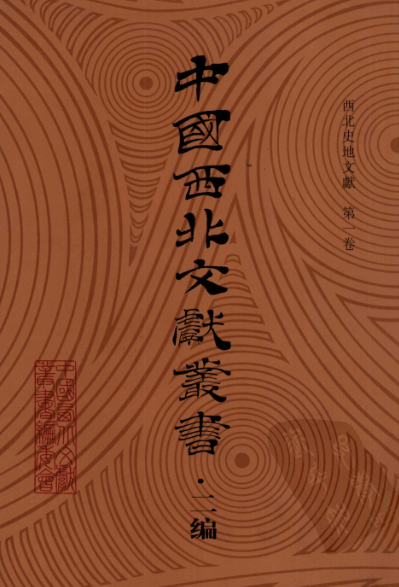 西北史地文獻 第一卷
中國西北文獻叢書·二编
中國西北文獻
叢書編委會